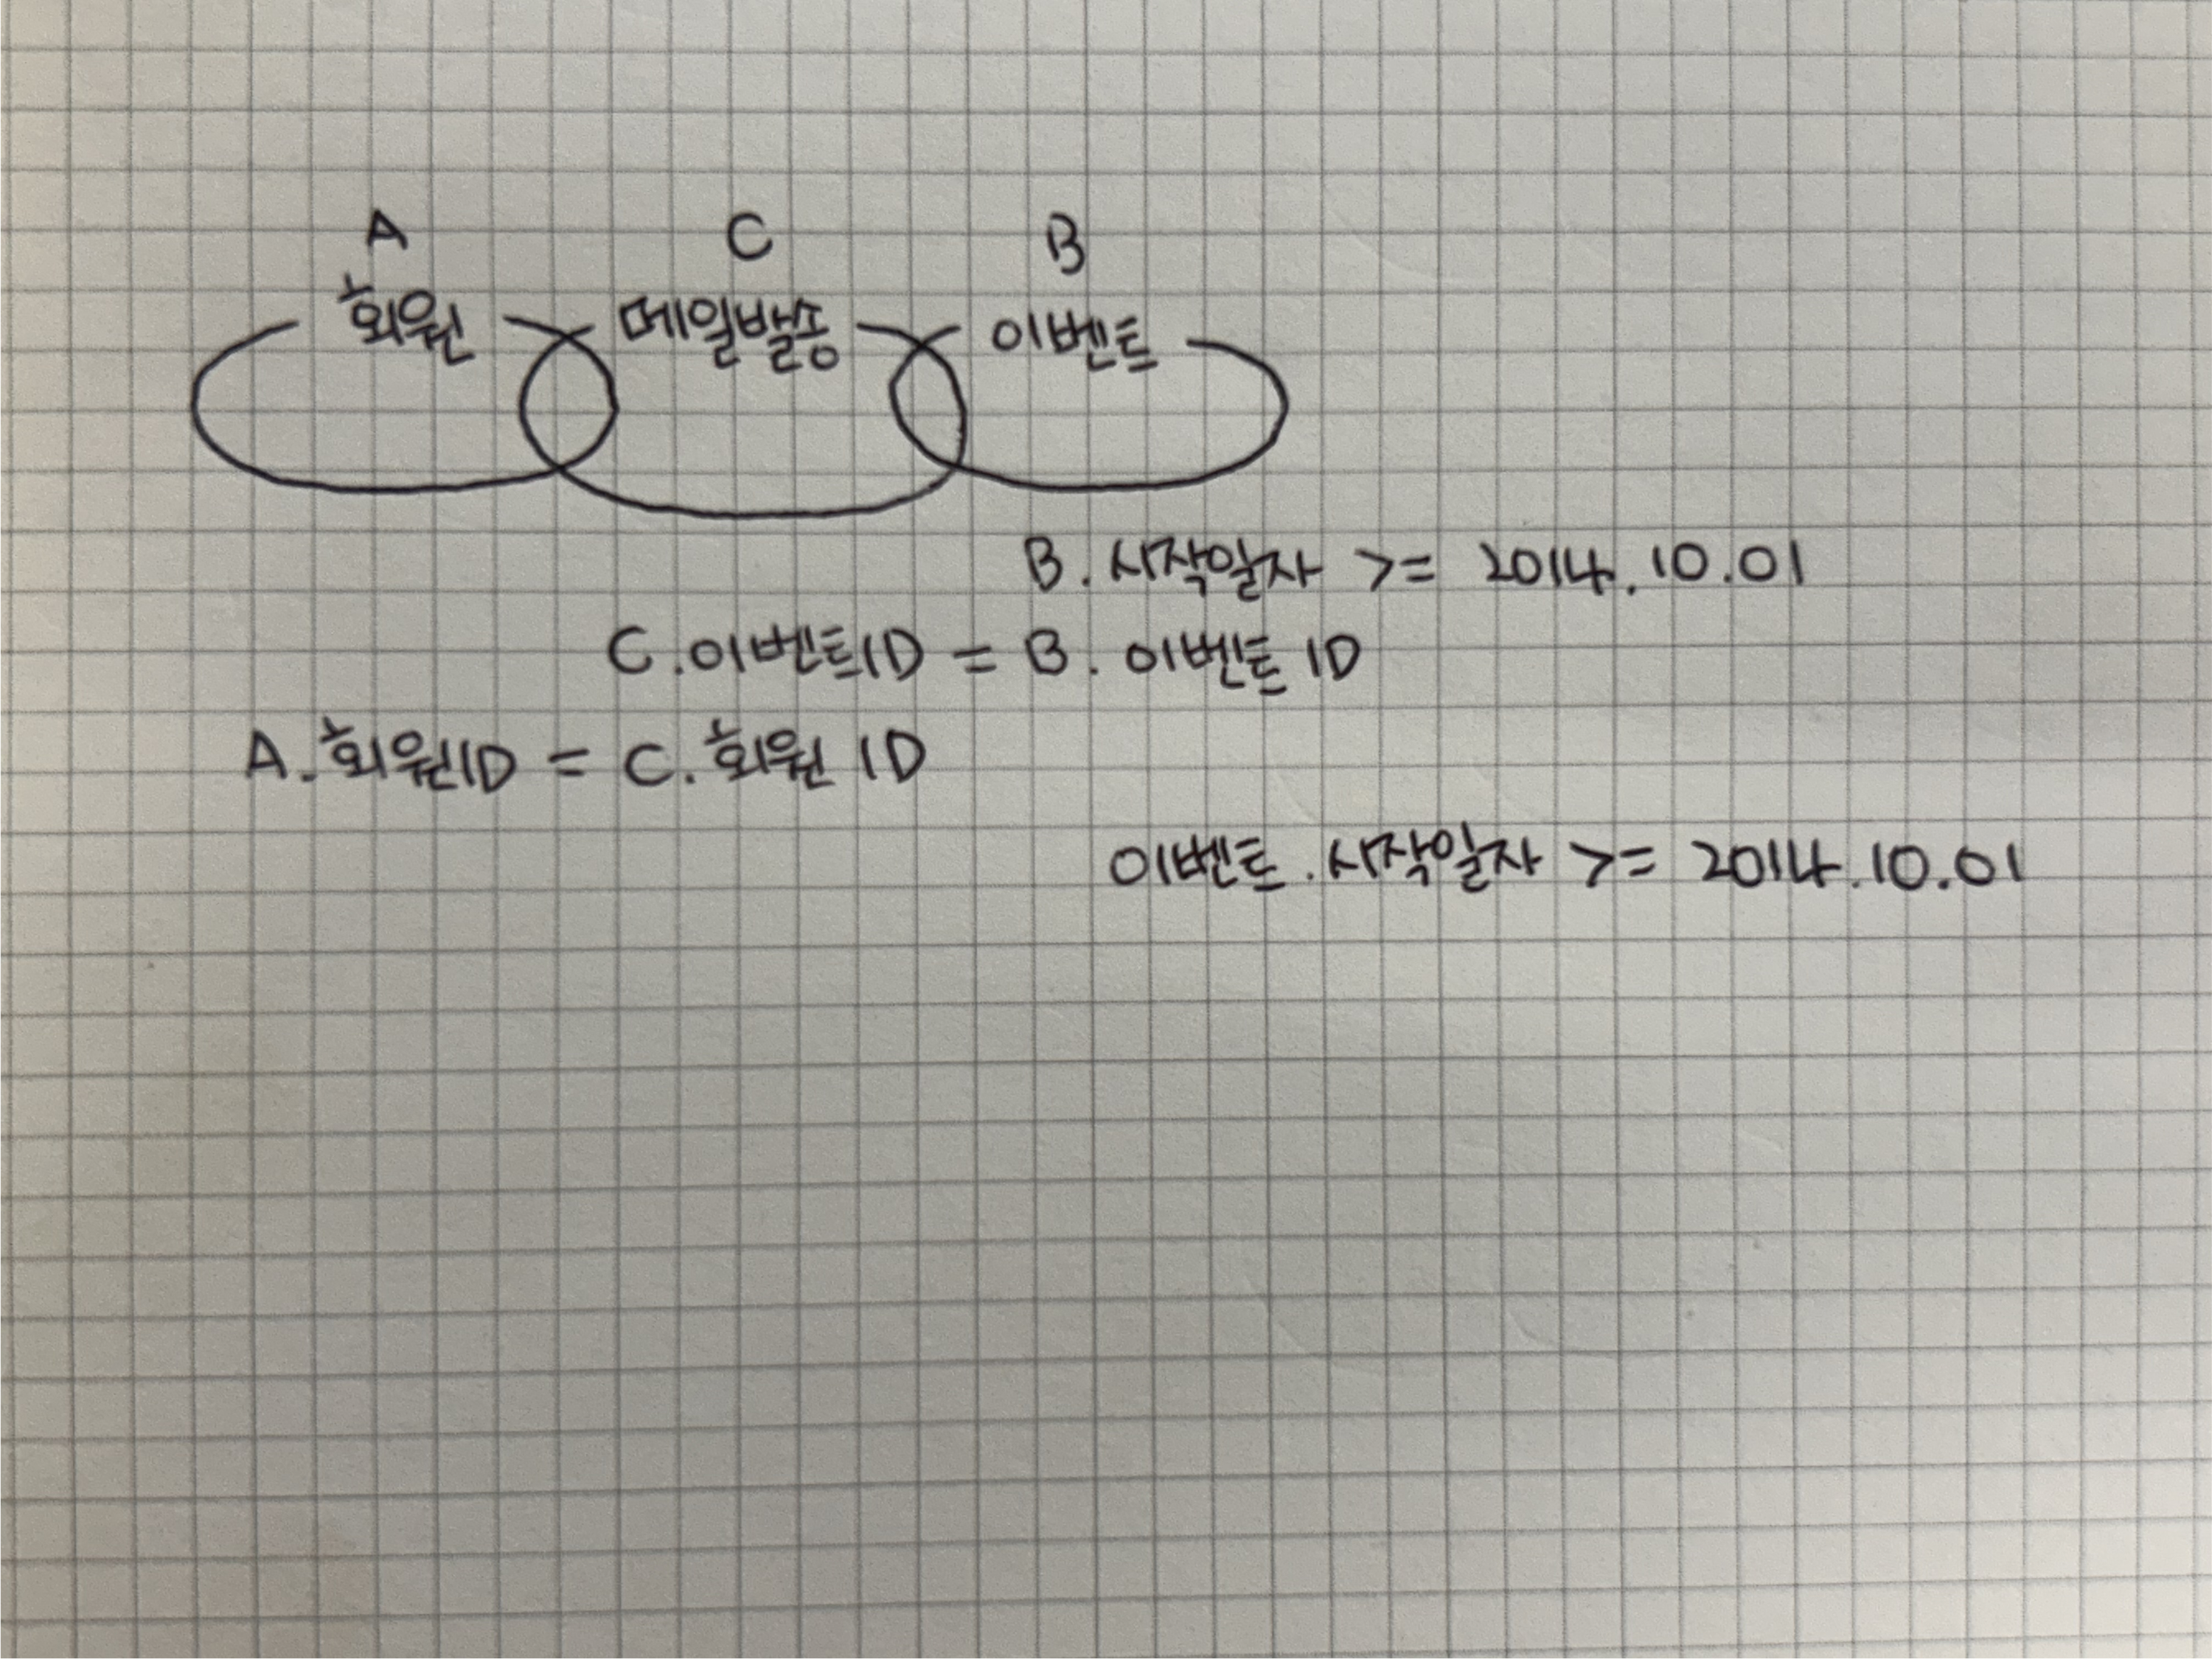 A C B
회원 메일발송 이벤트
B. 시작일자 >= 2014.10.01
C.이벤트ID = B. 이벤트 ID
A.회원ID = C.회원 ID
이벤트.시작일자 >= 2014.10.01